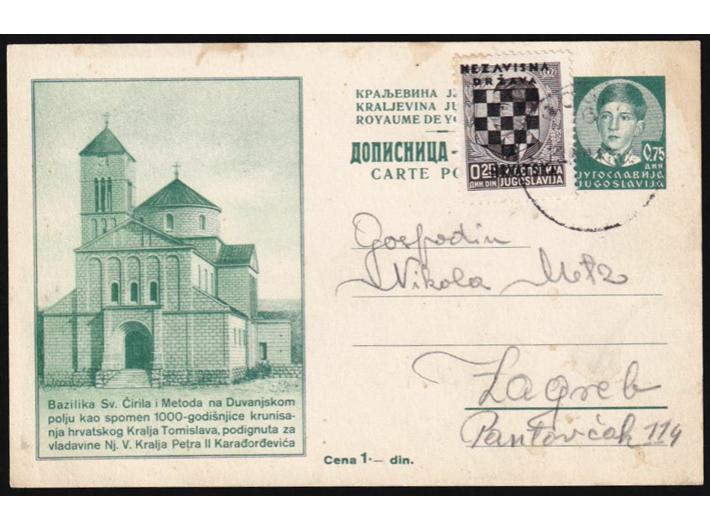 КРАЉЕВИНА
KRALJEVINA JU
ROYAUME DE YO
ДОПИСНИЦА -
CARTE PO
NEZAVISNA
DRŽAVA
HRVATSKA
ДИН. DIN. JUGOSLAVIJA
0,75
ДИН
ЈУГОСЛАВИЈА
JUGOSLAVIJA
Gospodin
Nikola
Zagreb
Pantovčak 114
Bazilika Sv. Ćirila i Metoda na Duvanjskom
polju kao spomen 1000-godišnjice krunisa-
nja hrvatskog Kralja Tomislava, podignuta za
vladavine Nj. V. Kralja Petra II Karađorđevića
Cena 1·— din.